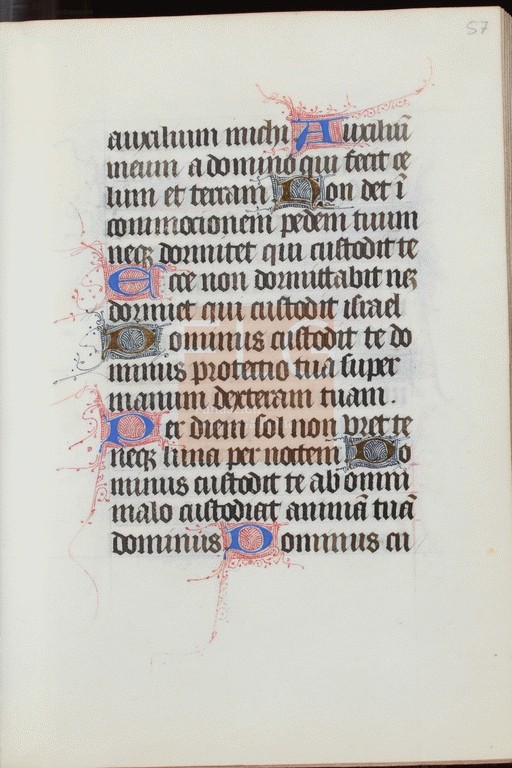 57
auxilium michi Auxiliū
meum a domino qui fecit ce
lum et terram Non det ī
commocionem pedem tuum
neqꝫ dormitet qui custodit te
Ecce non dormittabit neqꝫ
dormiet qui custodit israel
Dominus custodit te do
minus protectio tua super
manum dexteram tuam.
Per diem sol non vret te
neqꝫ luna per noctem Do
minus custodit te ab omni
malo custodiat animā tuā
dominus Dominus cu